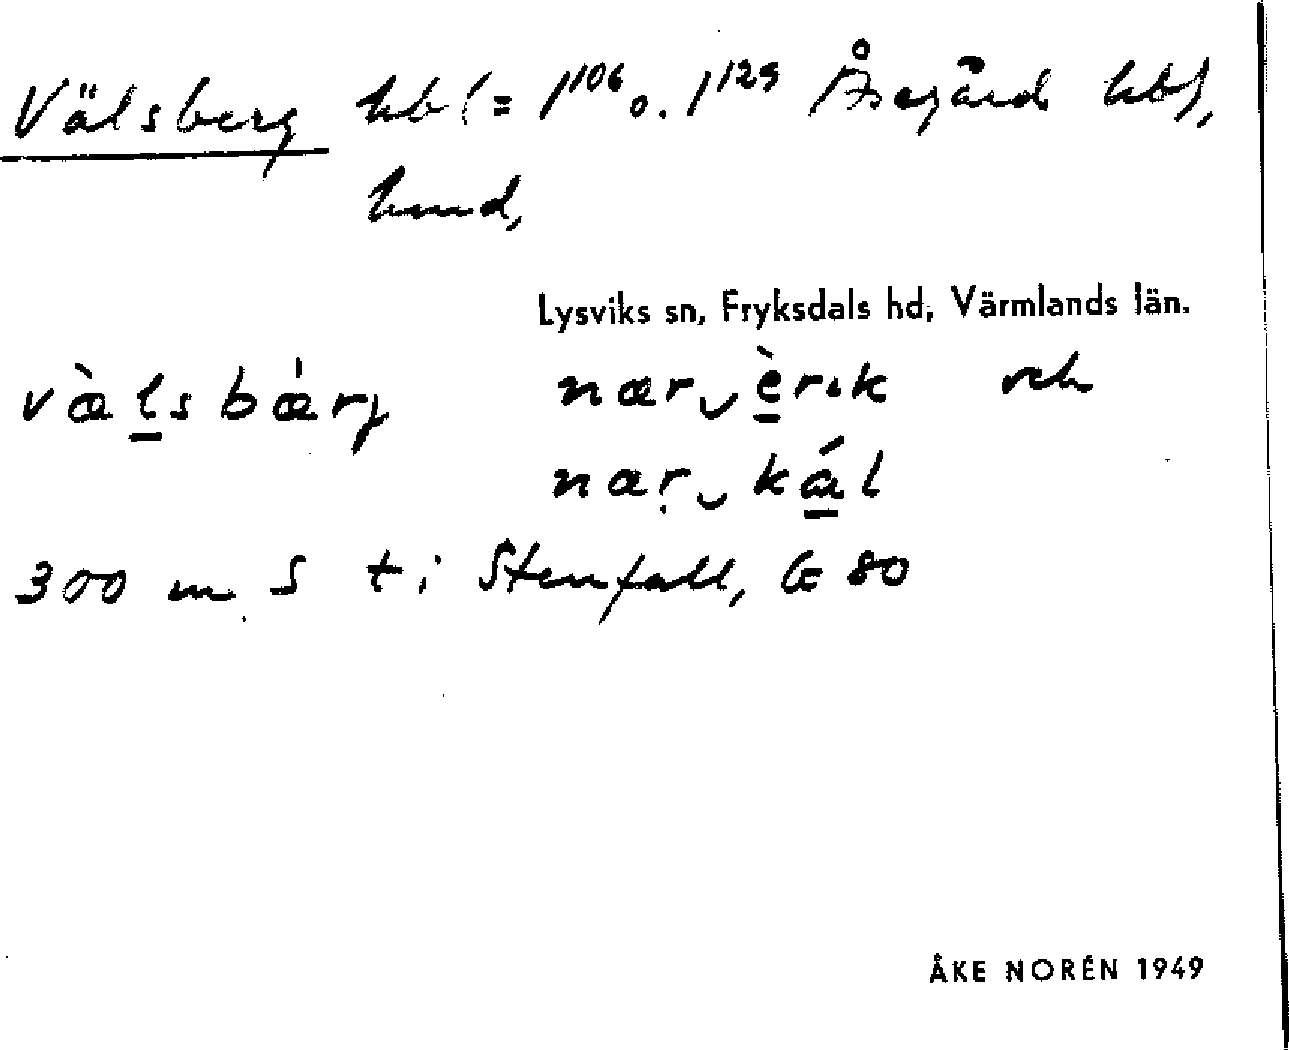 Välsberg hbl = 1¹⁰⁶ o. 1¹²⁹ Åsegård hbl,
hmd,
Lysviks sn, Fryksdals hd, Värmlands län.
væ̀l̲sbǽrj nær‿è̲rik och
næṛ‿ká̲l
300 m S t; Stenfall, G 80
ÅKE NORÉN 1949